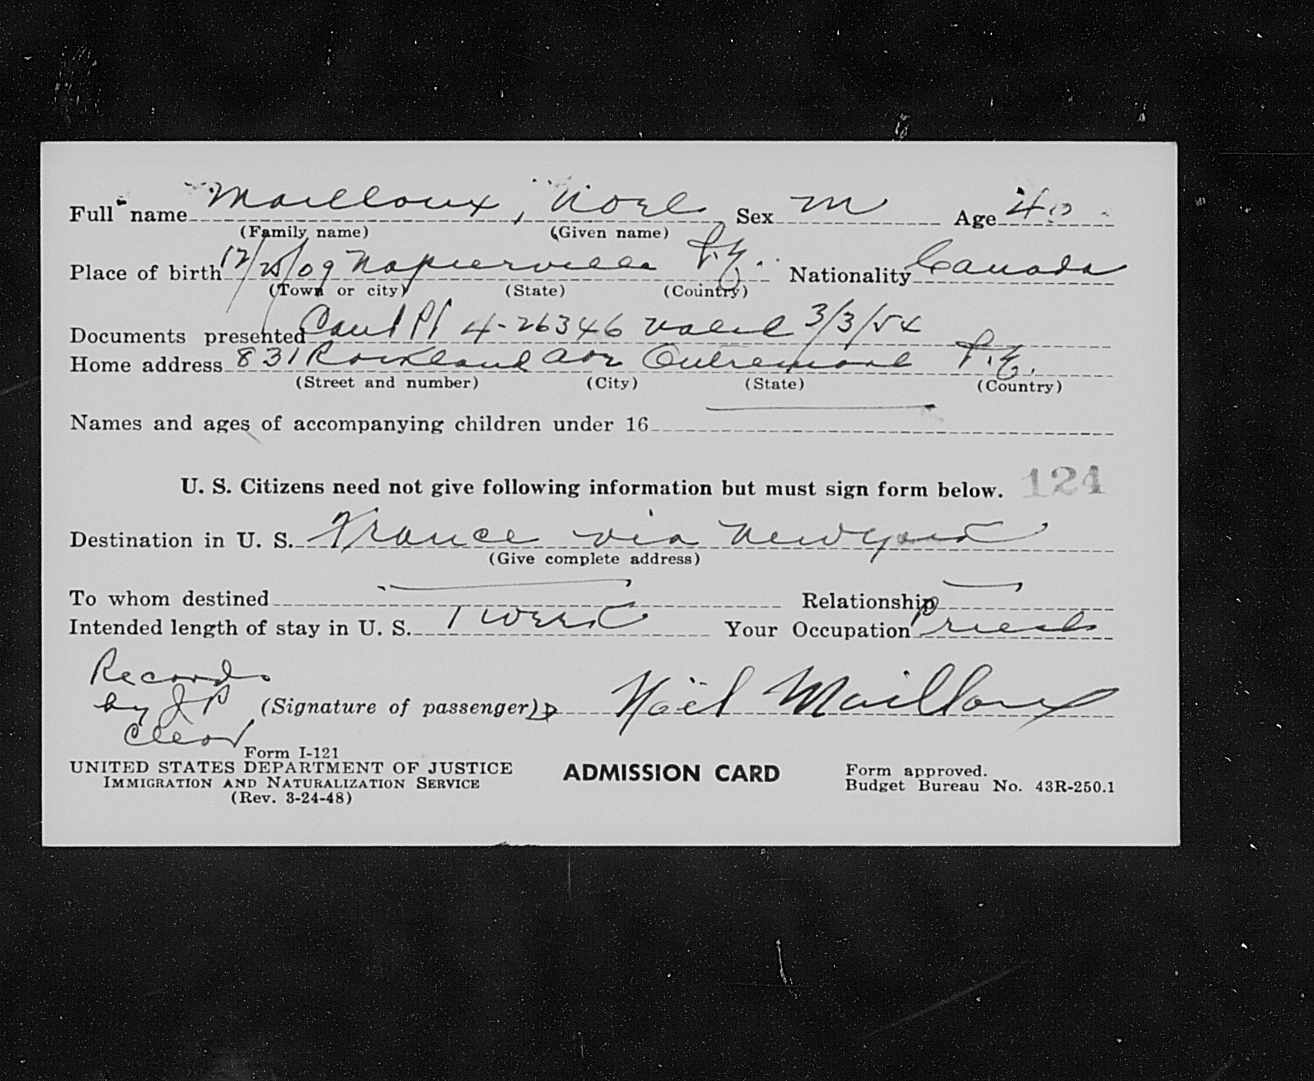 Full name Mailloux, Noel Sex M Age 40
(Family name) (Given name)
Place of birth 12/25/09 Napierville P.Q. Nationality Canada
(Town or city) (State) (Country)
Documents presented Can PP 4-26346 valid 3/3/54
Home address 831 Rockland Ave Outremont P.Q.
(Street and number) (City) (State) (Country)
Names and ages of accompanying children under 16
U. S. Citizens need not give following information but must sign form below. 124
Destination in U. S. France via New York
(Give complete address)
To whom destined Relationship
Intended length of stay in U. S. 1 week Your Occupation Priest
Records
by JP (Signature of passenger) Noël Mailloux
Clear
Form I-121
UNITED STATES DEPARTMENT OF JUSTICE ADMISSION CARD Form approved.
IMMIGRATION AND NATURALIZATION SERVICE Budget Bureau No. 43R-250.1
(Rev. 3-24-48)